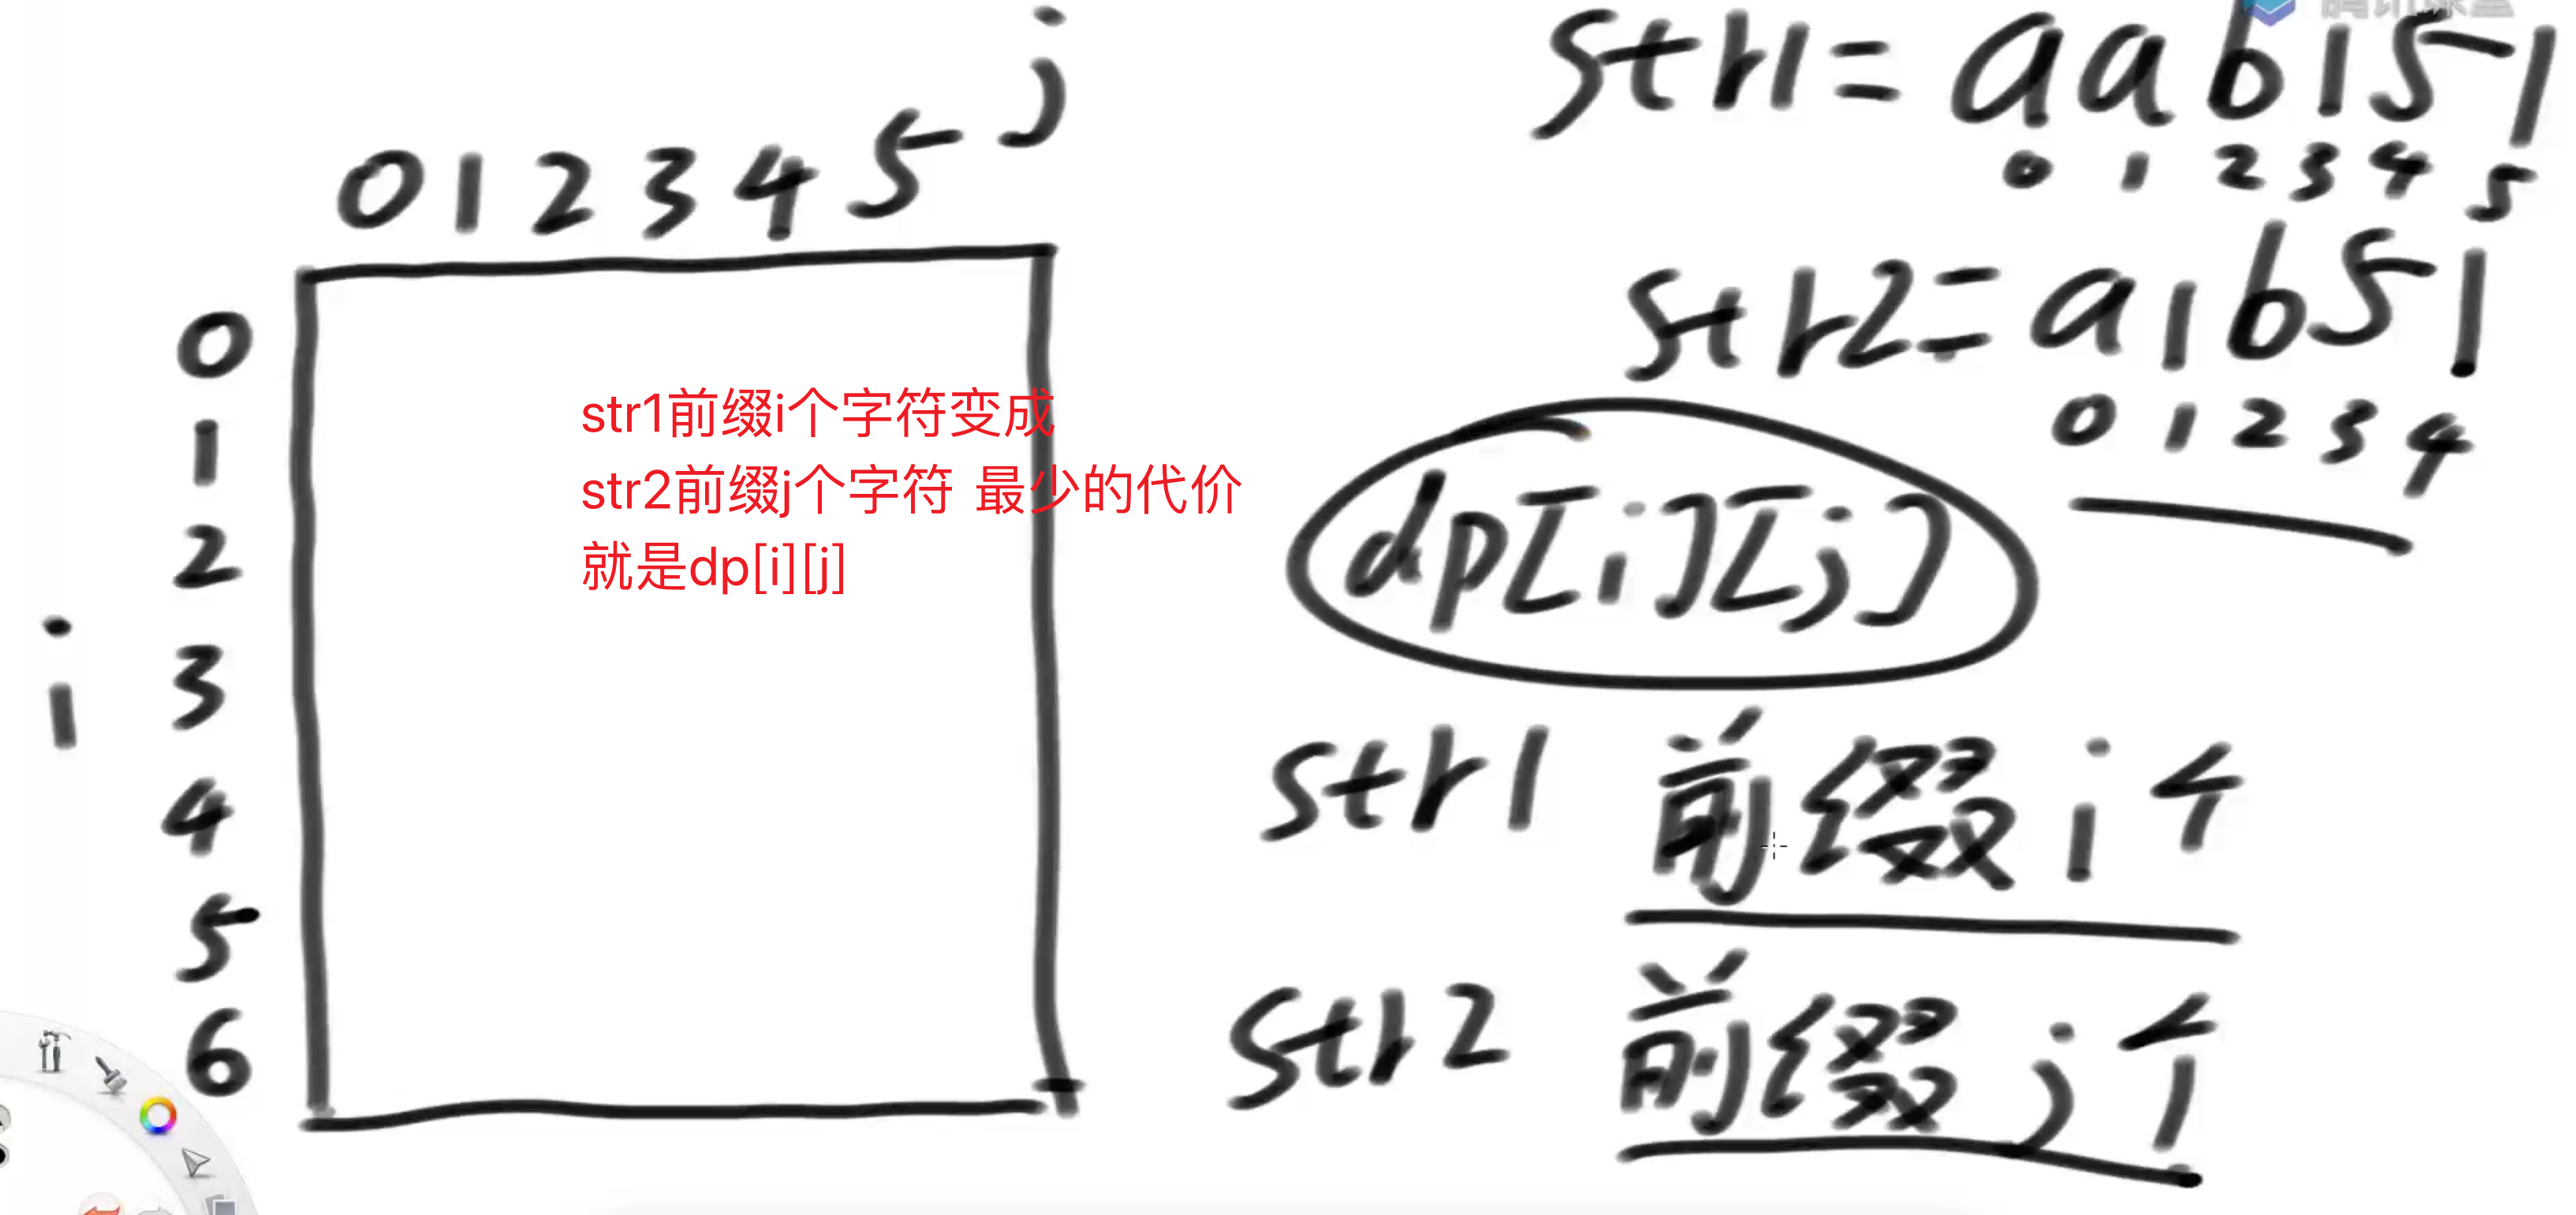 j
0 1 2 3 4 5
0
1
2
3
4
5
6
i
str1前缀i个字符变成
str2前缀j个字符 最少的代价
就是dp[i][j]
str1= aab151
0 1 2 3 4 5
str2= a1b51
0 1 2 3 4
dp[i][j]
str1 前缀i个
str2 前缀j个